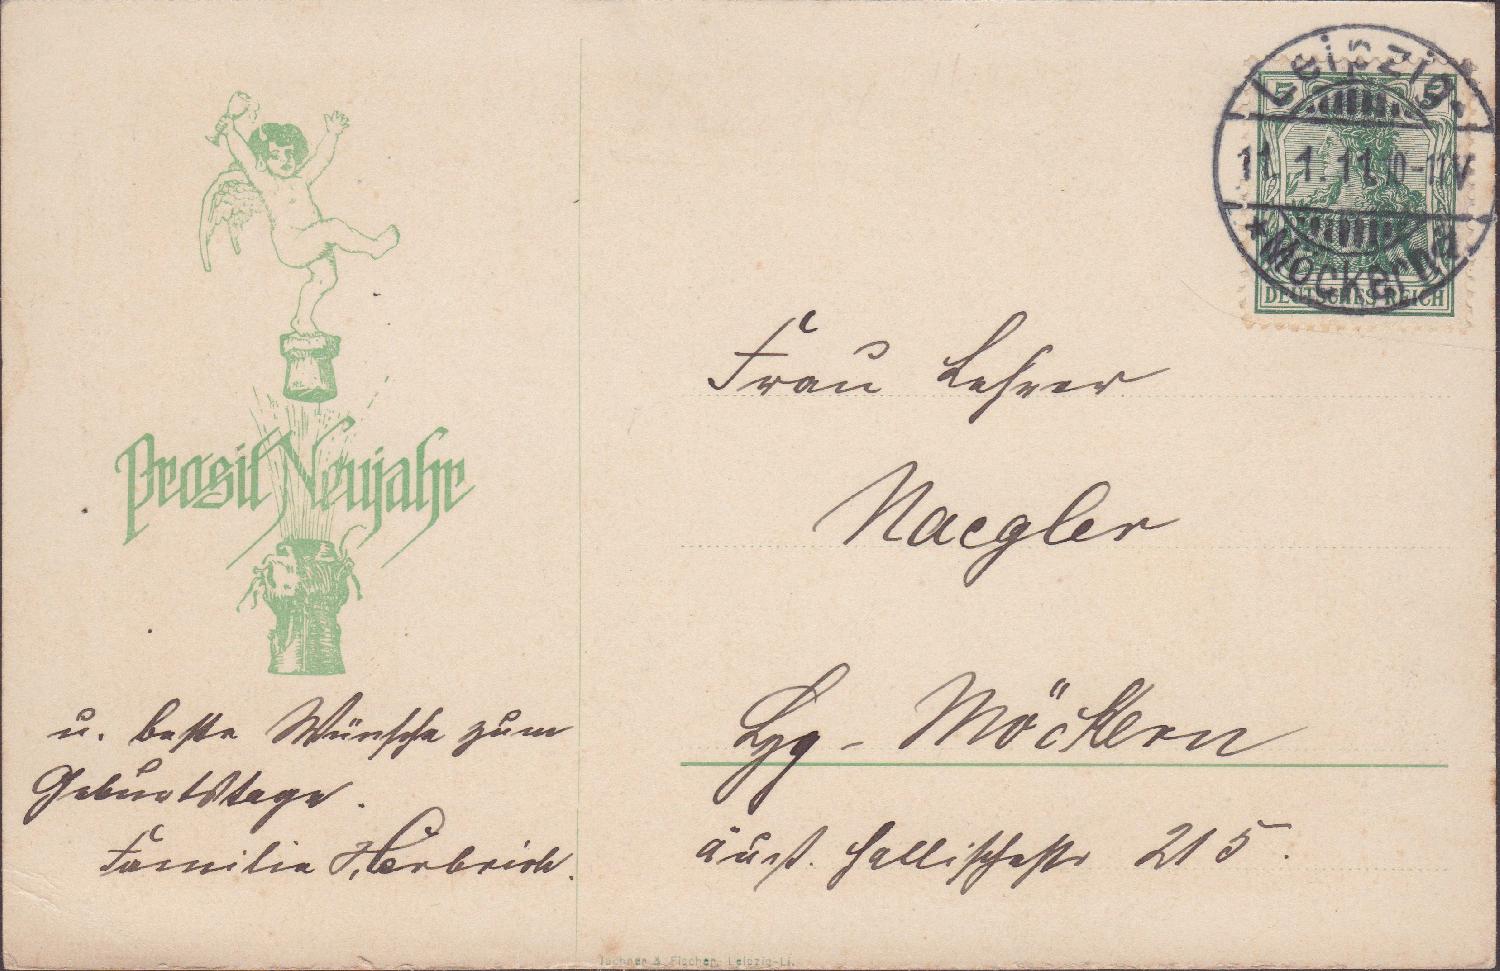 Leipzig.
11.1.11.10-11V
* Möckern
5 5
DEUTSCHES REICH
Prosit Neujahr
u. beste Wünsche zum
Geburtstage.
Familie Herbrich.
Frau Lehrer
Naegler
Lpzg - Möckern
äuß. Hallischestr 215.
& Fischer, Leipzig-Li.